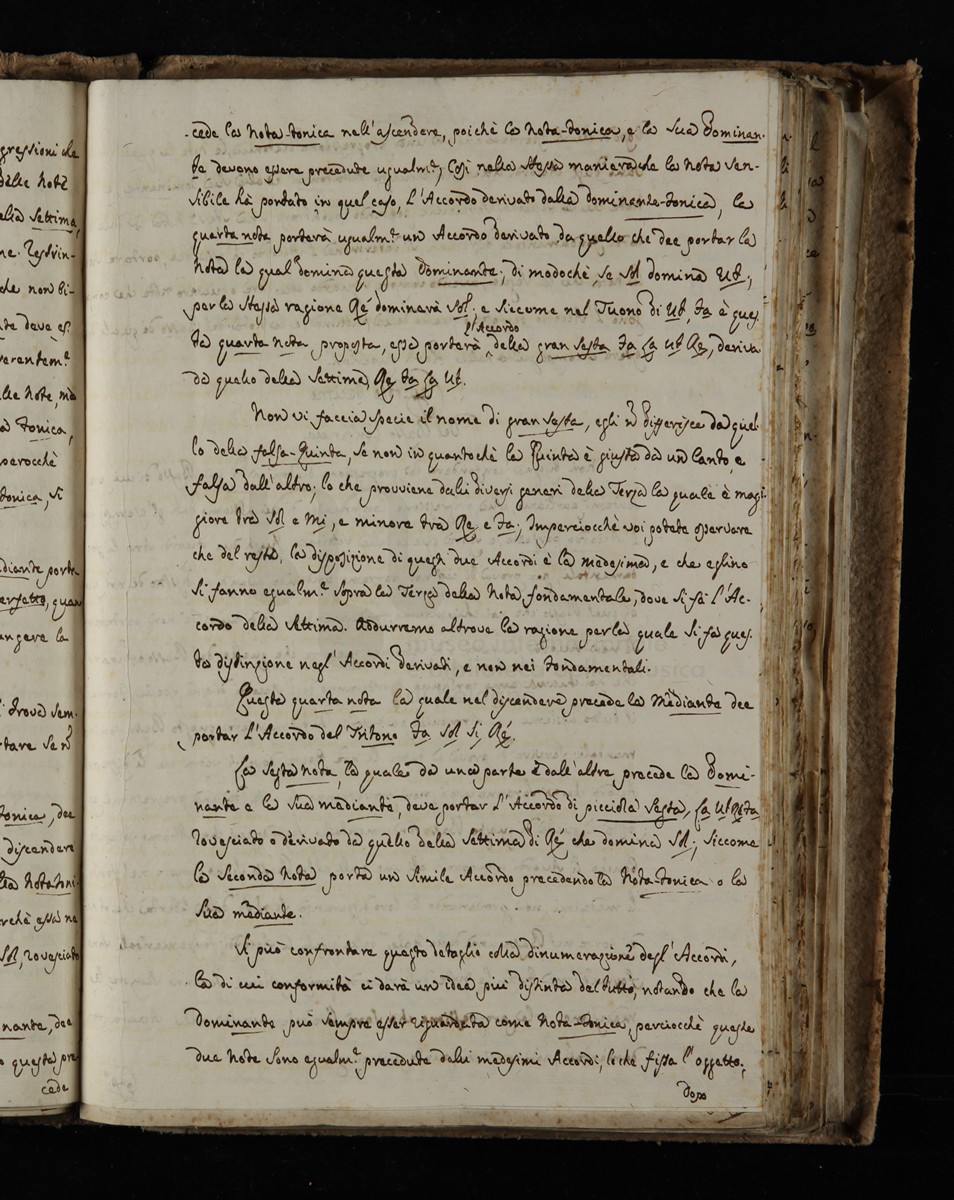 gressioni che
delle Note
ella Settima,
ne. Restrin-
che non bi-
nte deve es
verentem.e
lle Note, ma
a Tonica,
perocchè
tonica, si
diante porta
erfetto, quan
ungere la
trova sem-
tare se n
tonica, dee
discendere
lla Nota toni
rchè essa no
Sol, rovesciato
nante, dee
o questa pre
cede
cede la Nota-tonica nell'ascendere, poichè la Nota-tonica, e la sua Dominan-
te devono essere precedute ugualm.e; Così nella stessa maniera che la nota sen-
sibile hà portato in quel caso, L'Accordo derivato dalla dominante-tonica, la
quarta nota porterà ugualm.e un Accordo derivato da quello che dee portar la
Nota la qual domina questa Dominante; di modochè, se Sol domina Ut;
per la stessa ragione Re dominarà Sol; e siccome nel Tuono di Ut, Fa è ques
ta quarta nota proposta, essa porterà l'Accordo della gran sesta Fa La Ut Re, deriva
da quello della Settima, Re Fa La Ut.
Non vi faccia specie il nome di gran sesta, egli n differisce da quel
lo della falsa-Quinta, se non in quantochè la Quinta è giusta da un canto, e
falsa dall'altro; lo che provviene dalli diversi generi della Terza la quale è mag
giore trà Sol e Mi, e minore trà Re e Fa; Imperciocchè voi potete osservare
che del resto, la disposizione di questi due Accordi è la medesima, e che eglino
si fanno egualm.e sopra la Terza della Nota fondamentale, dove si fà l'Ac-
cordo della Settima. Addurremo altrove la ragione per la quale si fa ques
ta distinzione negl'Accordi derivati, e non nei fondamentali.
Questa quarta nota la quale nel discendere precede la Mediante dee
portar L'Accordo del Tritono Fa Sol Si Re.
La sesta nota, la quale da una parte e dall'altra precede la Domi-
nante e la sua mediante, deve portar L'Accordo di picciola Sesta, La Ut Re Fa
rovesciato o derivato da quello della Settima di Re che domina Sol; siccome
la Seconda Nota porta un simile Accordo precedendo la Nota-tonica o la
sua mediante.
Si può confrontare questo dettaglio colla dinumerazione degl'Accordi,
la di cui conformità ci darà un idea più distinta del tutto, notando che la
dominante può sempre esser riguardata come Nota-tonica, perciocchè queste
due Note sono egualm.e precedute dalli medesimi Accordi; lo che fissa l'oggetto,
dopo